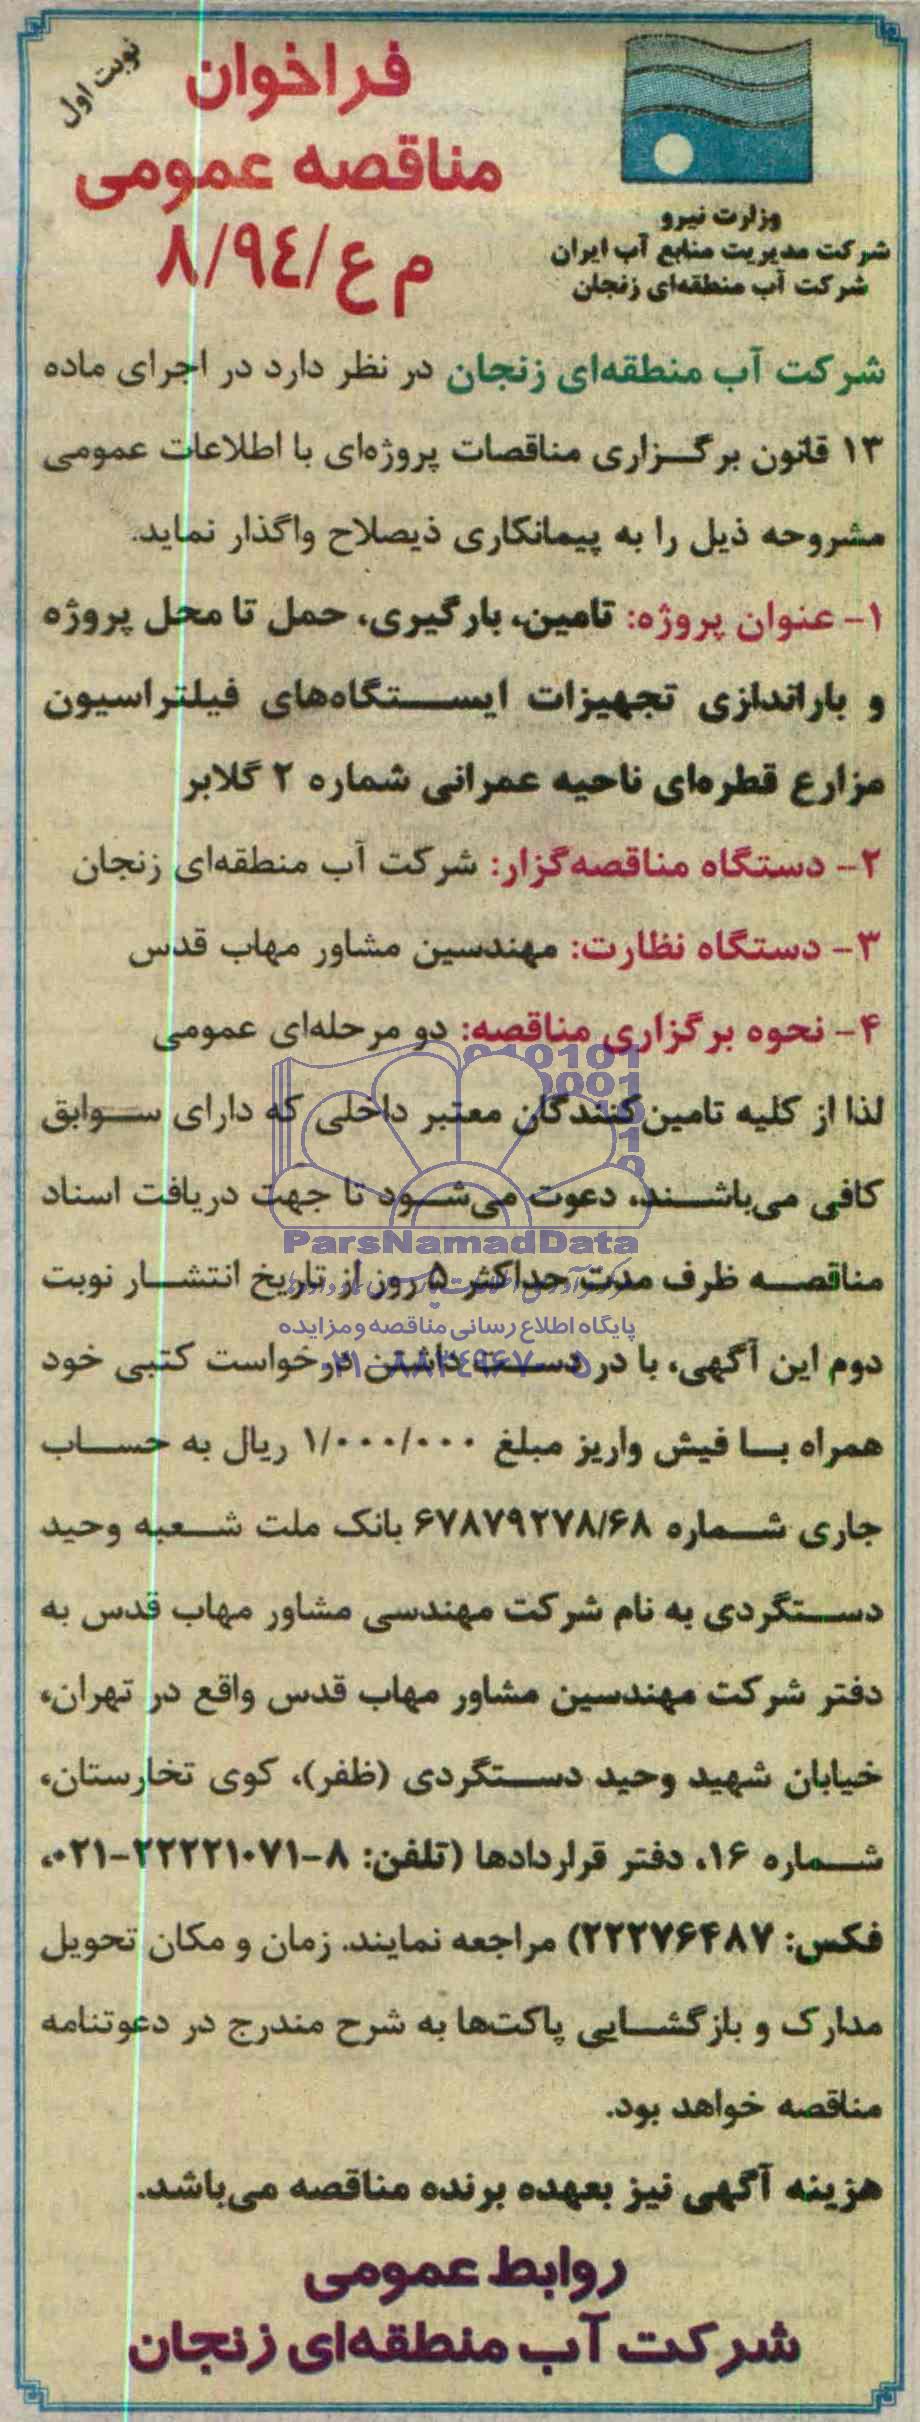 نوبت اول
فراخوان
مناقصه عمومی
م ع/۸/۹٤
وزارت نیرو
شرکت مدیریت منابع آب ایران
شرکت آب منطقه‌ای زنجان
شرکت آب منطقه‌ای زنجان در نظر دارد در اجرای ماده
۱۳ قانون برگزاری مناقصات پروژه‌ای با اطلاعات عمومی
مشروحه ذیل را به پیمانکاری ذیصلاح واگذار نماید.
۱- عنوان پروژه: تامین، بارگیری، حمل تا محل پروژه
و باراندازی تجهیزات ایستگاه‌های فیلتراسیون
مزارع قطره‌ای ناحیه عمرانی شماره ۲ گلابر
۲- دستگاه مناقصه‌گزار: شرکت آب منطقه‌ای زنجان
۳- دستگاه نظارت: مهندسین مشاور مهاب قدس
۴- نحوه برگزاری مناقصه: دو مرحله‌ای عمومی
لذا از کلیه تامین‌کنندگان معتبر داخلی که دارای سوابق
کافی می‌باشند، دعوت می‌شود تا جهت دریافت اسناد
ParsNamadData
مناقصه ظرف مدت حداکثر ۵ روز از تاریخ انتشار نوبت
پایگاه اطلاع رسانی مناقصه و مزایده
دوم این آگهی، با در دست داشتن درخواست کتبی خود
۰۲۱-۸۸۳٤۹۶۷۰-۵
همراه با فیش واریز مبلغ ۱/۰۰۰/۰۰۰ ریال به حساب
جاری شماره ۶۷۸۷۹۲۷۸/۶۸ بانک ملت شعبه وحید
دستگردی به نام شرکت مهندسی مشاور مهاب قدس به
دفتر شرکت مهندسین مشاور مهاب قدس واقع در تهران،
خیابان شهید وحید دستگردی (ظفر)، کوی تخارستان،
شماره ۱۶، دفتر قراردادها (تلفن: ۸-۲۲۲۲۱۰۷۱-۰۲۱،
فکس: ۲۲۲۷۶۴۸۷) مراجعه نمایند. زمان و مکان تحویل
مدارک و بازگشایی پاکت‌ها به شرح مندرج در دعوتنامه
مناقصه خواهد بود.
هزینه آگهی نیز بعهده برنده مناقصه می‌باشد.
روابط عمومی
شرکت آب منطقه‌ای زنجان